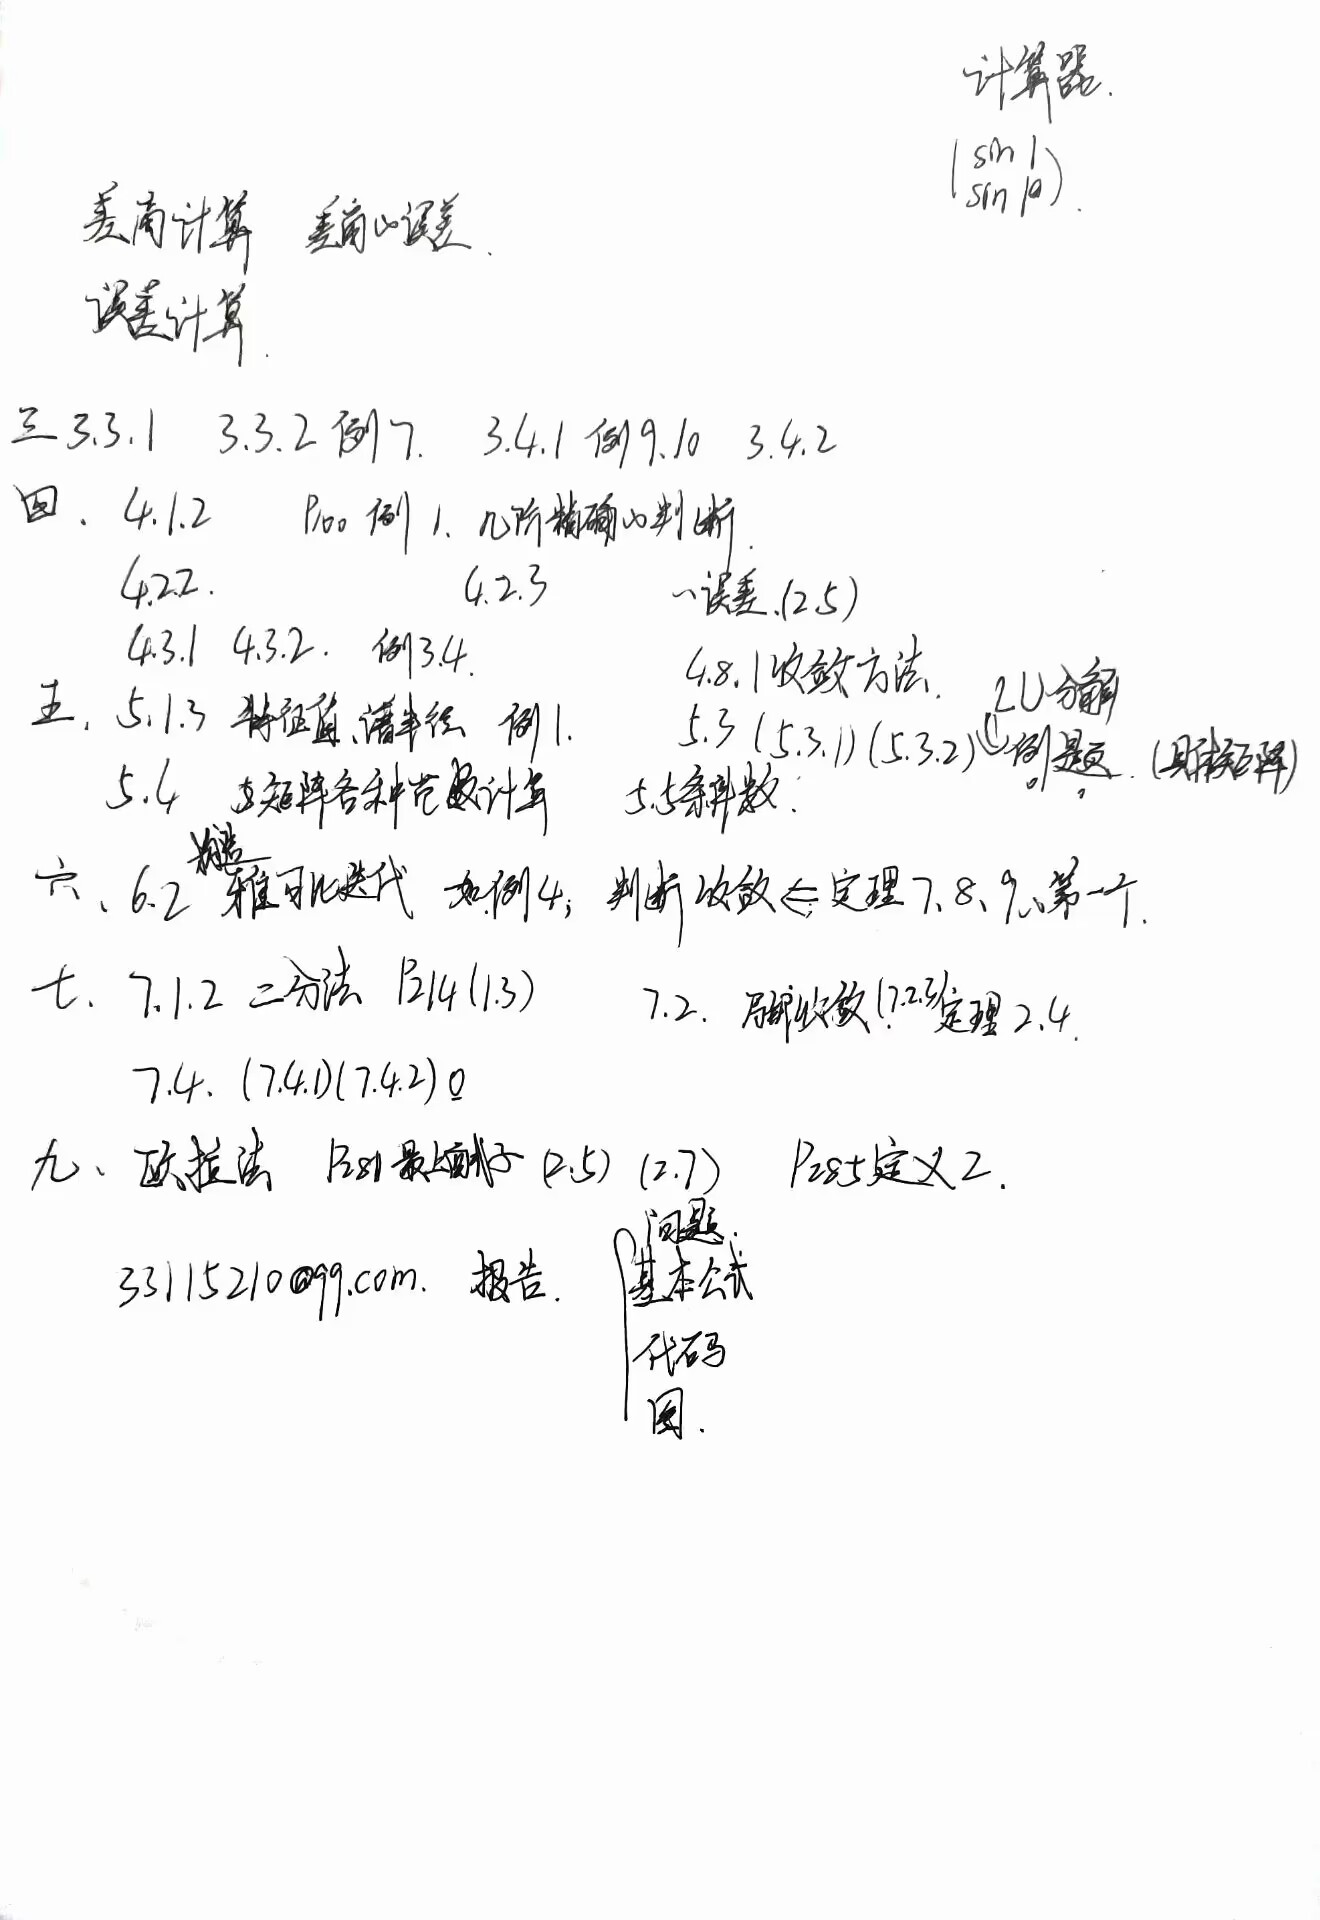 计算器.
(sin 1
sin 1°).
差商计算 差商的误差.
误差计算.
三 3.3.1 3.3.2 例7. 3.4.1 例9.10 3.4.2
四. 4.1.2 P100 例1. 几阶精确的判断.
4.2.2. 4.2.3 误差.(2.5)
4.3.1 4.3.2. 例3.4. 4.8.1 收敛方法.
五. 5.1.3 特征值、谱半径 例1. 5.3 (5.3.1) (5.3.2) LU分解 例题. (具体矩阵)
5.4 矩阵各种范数计算 5.5 条件数.
六、6.2 雅可比迭代 如例4; 判断收敛 ⇐ 定理7、8、9、第一个.
七、7.1.2 二分法 P214 (1.3) 7.2. 局部收敛 (7.2.3) 定理 2.4.
7.4. (7.4.1)(7.4.2)
九、欧拉法 P281 最上面式子 (2.5) (2.7) P285 定义2.
33115210@qq.com. 报告. 问题.
基本公式
代码
图.